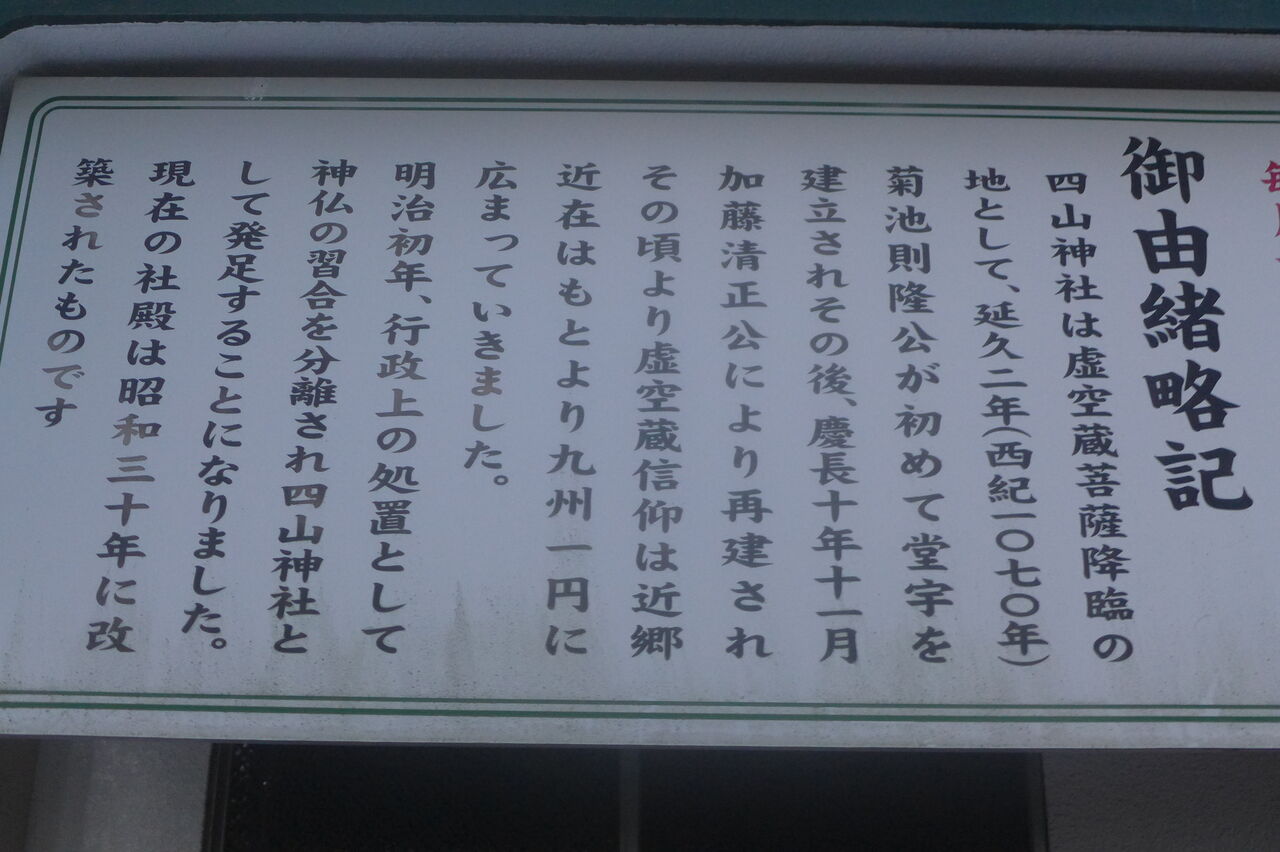 御由緒略記
四山神社は虚空蔵菩薩降臨の
地として、延久二年(西紀一〇七〇年)
菊池則隆公が初めて堂宇を
建立されその後、慶長十年十一月
加藤清正公により再建され
その頃より虚空蔵信仰は近郷
近在はもとより九州一円に
広まっていきました。
明治初年、行政上の処置として
神仏の習合を分離され四山神社と
して発足することになりました。
現在の社殿は昭和三十年に改
築されたものです